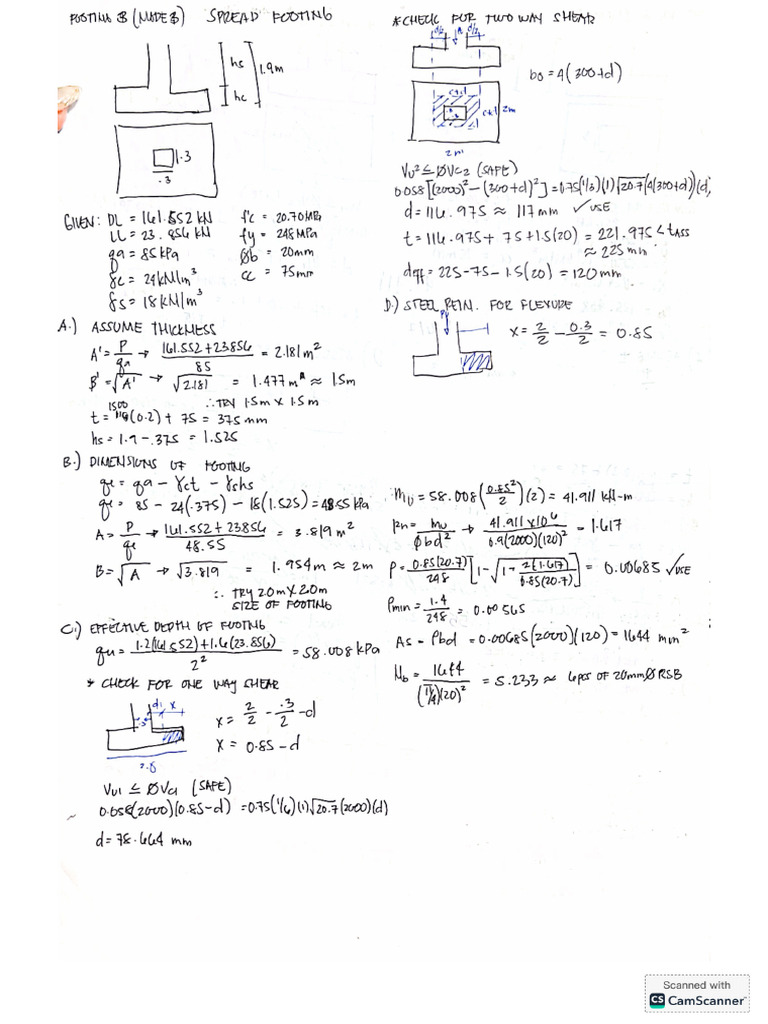 FOOTING B (NODE B) SPREAD FOOTING
hs
1.9m
hc
.3
.3
GIVEN: DL = 161.552 kN f'c = 20.70MPa
LL = 23.856 kN fy = 248 MPa
qa = 85 kPa Øb = 20mm
γc = 24kN/m³ cc = 75mm
γs = 18 kN/m³
A.) ASSUME THICKNESS
A' = P/qa → (161.552+23.856)/85 = 2.181 m²
B' = √A' → √2.181 = 1.477 m ≈ 1.5m
∴ TRY 1.5m X 1.5m
1500
t = (0.2) + 75 = 375 mm
hs = 1.9 - .375 = 1.525
B.) DIMENSIONS OF FOOTING
qe = qa - γct - γshs
qe = 85 - 24(.375) - 18(1.525) = 48.55 kPa
A = P/qe → (161.552 + 23.856)/48.55 = 3.819 m²
B = √A → √3.819 = 1.954m ≈ 2m
∴ TRY 2.0m X 2.0m
SIZE OF FOOTING
C.) EFFECTIVE DEPTH OF FOOTING
qu = (1.2(161.552)+1.6(23.856))/2² = 58.008 kPa
* CHECK FOR ONE WAY SHEAR
d x
.3
2.0
x = 2/2 - .3/2 - d
x = 0.85 - d
Vu1 ≤ ØVc1 (SAFE)
0.058(2000)(0.85-d) = 0.75(1/6)(1)√20.7(2000)(d)
d = 78.664 mm
* CHECK FOR TWO WAY SHEAR
d/2 d/2
bo = 4(300+d)
c+d
c+d
2m
2m
Vu2 ≤ ØVc2 (SAFE)
0.058[(2000)² - (300+d)²] = 0.75(1/3)(1)√20.7(4(300+d))(d)
d = 116.975 ≈ 117mm ✓USE
t = 116.975 + 75 + 1.5(20) = 221.975 < tASS
≈ 225 mm
deff = 225 - 75 - 1.5(20) = 120mm
D.) STEEL REIN. FOR FLEXURE
x = 2/2 - 0.3/2 = 0.85
Mu = 58.008(0.85²/2)(2) = 41.911 kN-m
Rn = Mu/Øbd² → 41.911 x10⁶/0.9(2000)(120)² = 1.617
ρ = 0.85(20.7)/248 [1 - √(1 - 2(1.617)/0.85(20.7))] = 0.00685 ✓USE
ρmin = 1.4/248 = 0.00565
As = ρbd = 0.00685(2000)(120) = 1644 mm²
Nb = 1644/(π/4)(20)² = 5.233 ≈ 6pcs OF 20mmØ RSB
Scanned with
CS CamScanner